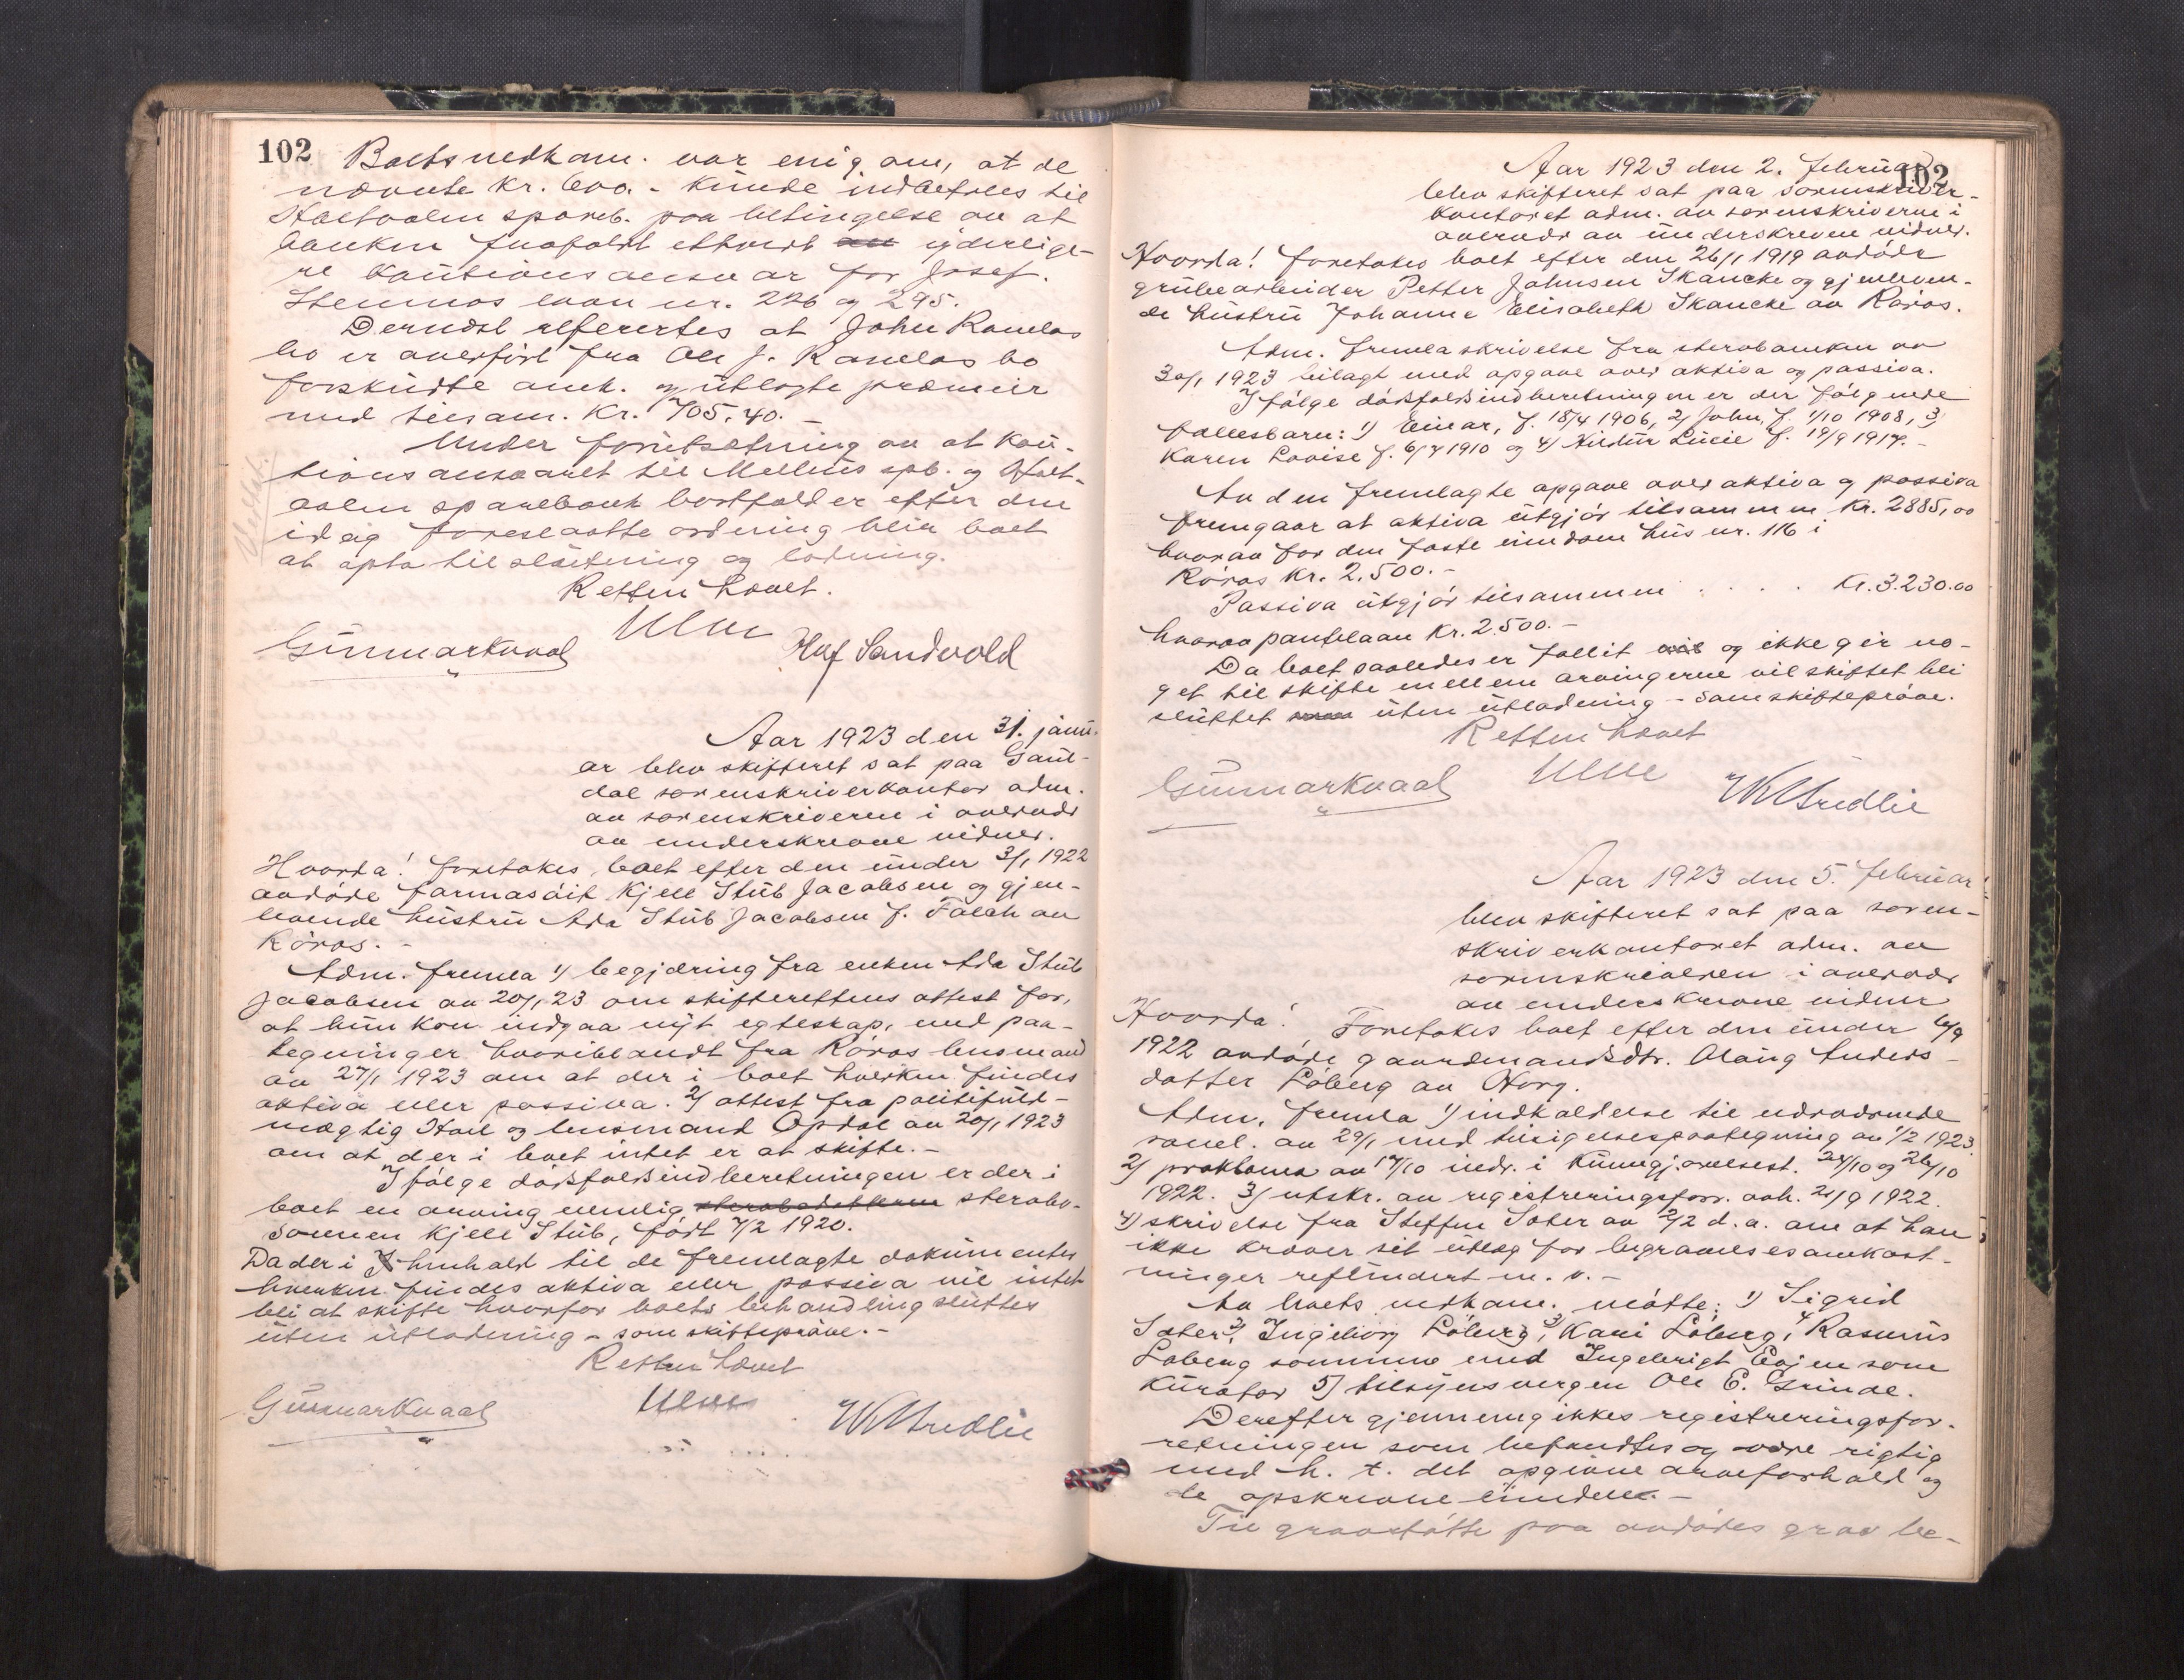 102
Boets medkom. var enig om, at de
nævnte kr. 600.- kunde indbetales til
Holtaalen spareb. paa betingelse av at
banken frafaldt ethvert ytterlige-
re kautionsansvar for Josef
Stenmos laan nr. 226 og 295.
Dernæst referertes at John Ramlos
bo er anerført fra Ole J. Ramlos bo
forskudte omk. og utlagte præmier
med tilsam. Kr. 705.40.-
Under forutsetning av at kau-
tionsansvaret til Melhus spb. og Holt-
aalen sparebank bortfalder efter den
idag foreslaatte ordning blir boet
at opta til slutning og lodning.
Retten hævet.
Ulve
Gunnar Kvaal
Olaf Sandvold
Aar 1923 den 31. janu-
ar blev skifteret sat paa Gaul-
dal sorenskriverkontor adm.
av sorenskriveren i overvær
av underskrevne vidner.
Hvorda! foretokes boet efter den under 3/1 1922
avdøde farmasøit Kjell Stub Jacobsen og gjen-
levende hustru Ada Stub Jacobsen f. Falch av
Røros.-
Adm. fremla 1) begjæring fra enken Ada Stub
Jacobsen av 20/1 23 om skifterettens attest for,
at hun kan indgaa nyt egteskap, med paa-
tegninger hvoriblandt fra Røros lensmand
av 27/1 1923 om at der i boet hverken findes
aktiva eller passiva. 2) attest fra politifuld-
mægtig Hall og lensmand Opdal av 20/1 1923
om at der i boet intet er at skifte.-
Ifølge dødsfaldsindberetningen er der i
boet en arving nemlig stervbodatteren stervbo-
sønnen Kjell Stub, født 7/2 1920.
Da der i henhold til de fremlagte dokumenter
hverken findes aktiva eller passiva vil intet
bli at skifte hvorfor boets behandling sluttes
uten utlodning - som skifteprøve.-
Retten hævet
Ulve
Gunnar Kvaal
102
Aar 1923 den 2. februar
blev skifteret sat paa sorenskriver-
kontoret adm. av sorenskriveren i
overvær av underskrevne vidner.
Hvorda! foretokes boet efter den 26/1 1919 avdøde
grubearbeider Petter Johnsen Skancke og gjenleven-
de hustru Johanne Elisabeth Skancke av Røros.
Adm. fremla skrivelse fra stervboenken av
30/1 1923 bilagt med opgave over aktiva og passiva.
Ifølge dødsfaldsindberetningen er der følgende
fællesbarn: 1) Einar, f. 18/4 1906, 2) John, f. 1/10 1908, 3)
Karen Lovise f. 6/7 1910 og 4) Lucie f. 19/9 1917.-
Av den fremlagte opgave over aktiva og passiva
fremgaar at aktiva utgjør tilsammen Kr. 2885,00
hvorav for den faste eiendom hus nr. 116 i
Røros Kr. 2.500.-
Passiva utgjør tilsammen . . . . Kr. 3.230.00
hvorav pantelaan Kr. 2500.-
Da boet saaledes er fallit og ikke gir no-
get til skifte mellem arvingerne vil skiftet bli
sluttet uten utlodning - som skifteprøve.
Retten hævet
Ulve
Gunnar Kvaal
Aar 1923 den 5. februar
blev skifteret sat paa soren-
skriverkontoret adm. av
sorenskriveren i overvær
av underskrevne vidner
Hvorda! Foretokes boet efter den under 6/9
1922 avdøde gaardmandsdtr. Olaug Anders-
datter Løberg av Horg.
Adm. fremla 1) indkaldelse til nærværende
saml. av 29/1 med tilsigelsespaategning av 1/2 1923.
2) proklama av 17/10 indr. i Kunngjørelsest. 24/10 og 26/10
1922. 3) utskr. av registreringsforr. avh. 21/9 1922.
4) skrivelse fra Steffen Sæter av 2/2 d.a. om at han
ikke kræver sit utlæg for begravelsesomkost-
ninger refundert m.v.-
Av boets medkom. møtte: 1) Sigrid
Sæter, 2) Ingeborg Løberg, 3) Kari Løberg, 4) Rasmus
Løberg sammen med Ingebrigt som
Kurator 5) tilsynsvergen Ole E. Grinde.
Derefter gjennemgikkes registreringsfor-
retningen som befandtes og være rigtig
med h.t. det opgivne arveforhold og
de opskrevne eiendele.-
Til gravstøtte paa avdødes grav be-